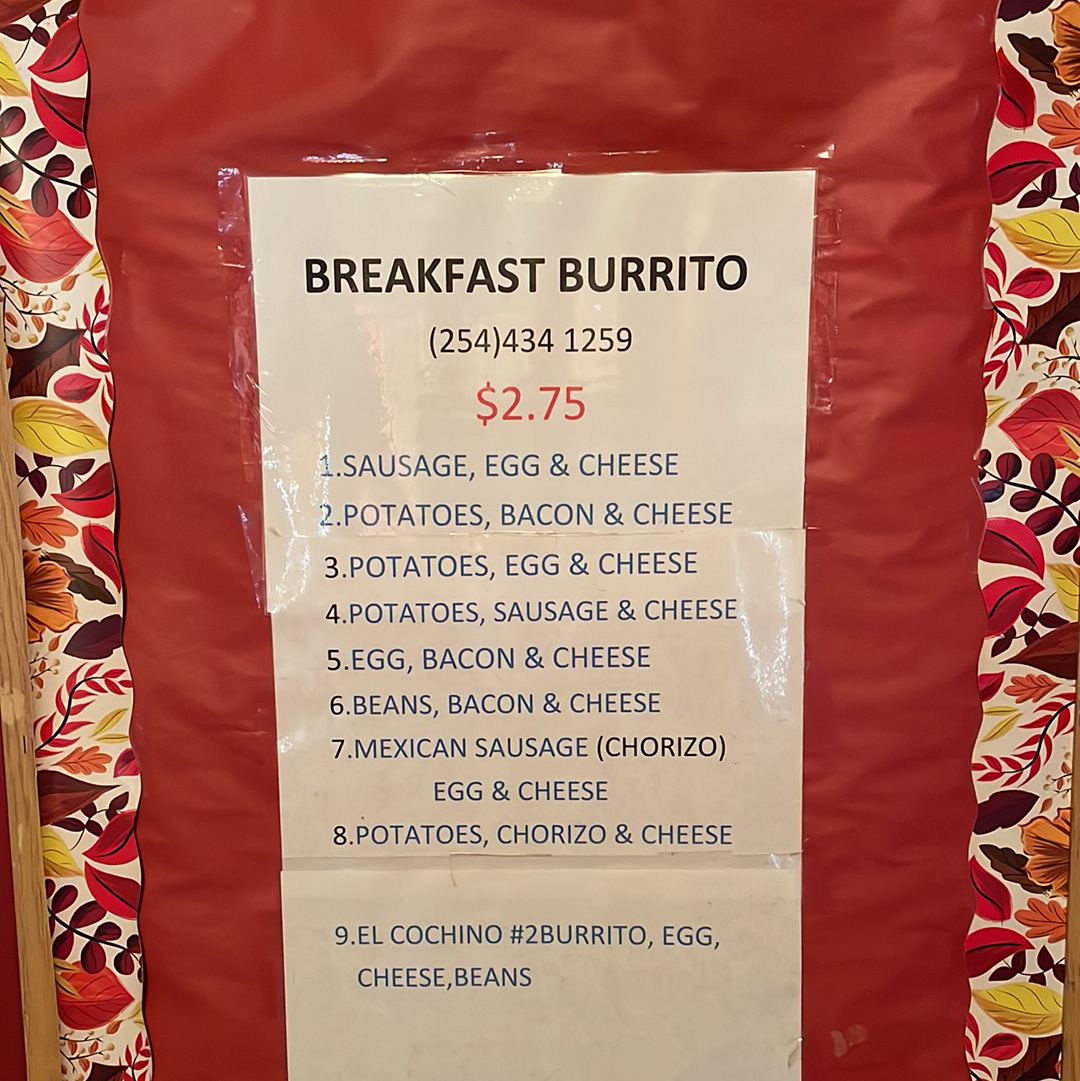 BREAKFAST BURRITO
(254)434 1259
$2.75
1.SAUSAGE, EGG & CHEESE
2.POTATOES, BACON & CHEESE
3.POTATOES, EGG & CHEESE
4.POTATOES, SAUSAGE & CHEESE
5.EGG, BACON & CHEESE
6.BEANS, BACON & CHEESE
7.MEXICAN SAUSAGE (CHORIZO)
EGG & CHEESE
8.POTATOES, CHORIZO & CHEESE
9.EL COCHINO #2BURRITO, EGG,
CHEESE,BEANS